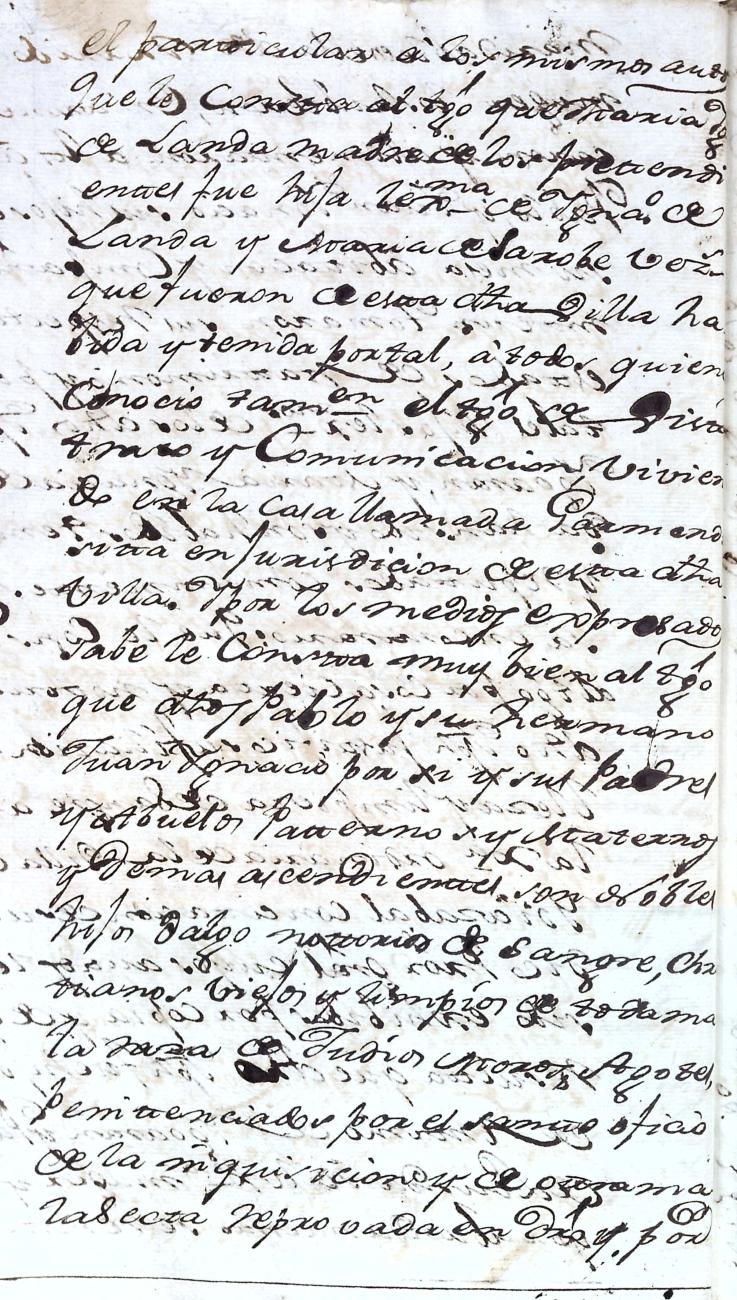 el particular â los mismos auto
que le Consta al tgô que Maria
de Landa madre de los pretendi
entes fue hija lexma de Ygnaô de
Landa y Maria de Sarobe vezs
que fueron de esta dha Villa ha
bida y tenida por tal, â todos quien
Conocio tamen el tgô de Vista
trato y Comunicacion, Vivien
do en la Casa llamada
sitta en Jurisdicion de esta dha
Villa. Y por los medios expresados
Sabe le Consta muy bien al tgô
que dhos Pablo y su hermano
Juan Ygnacio por si y sus Padres
y Abuelos Patternos y Maternos
y Demas ascendientes son Nobles
hijos dalgo nottorios de Sangre, Chr
tianos Viejos y limpios de toda ma
la raza de Judios Moros, Agotes,
Penittenciados por el santto oficio
de la inquisicion y de otra ma
la Secta reprovada en Drô y por